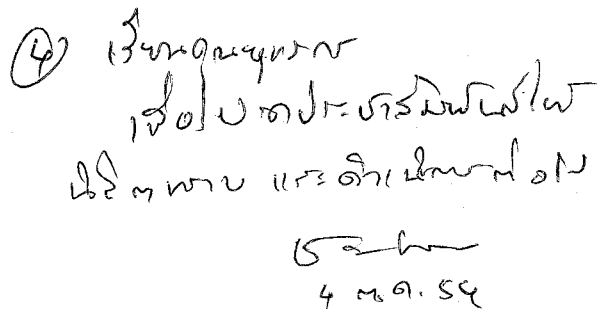 ④ เรียนคุณยุพาภรณ์
เพื่อโปรดประชาสัมพันธ์ให้
นิสิตทราบ และดำเนินการต่อไป
4 ต.ค. 54